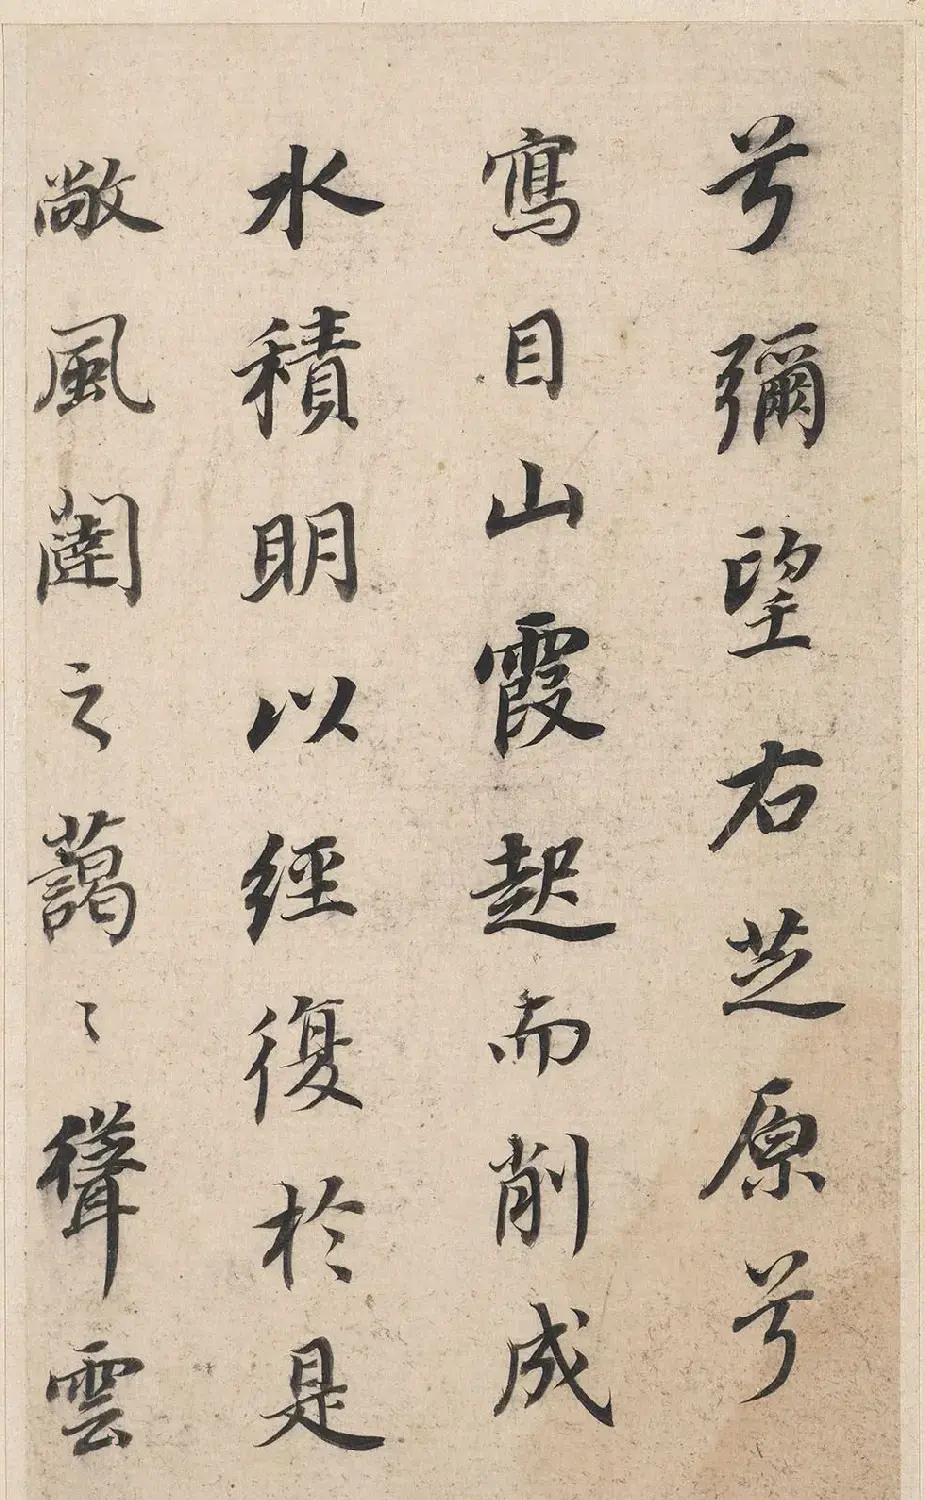 兮彌望右芝原兮
寫目山霞起而削成
水積明以經復於是
敞風闥之藹〻聳雲